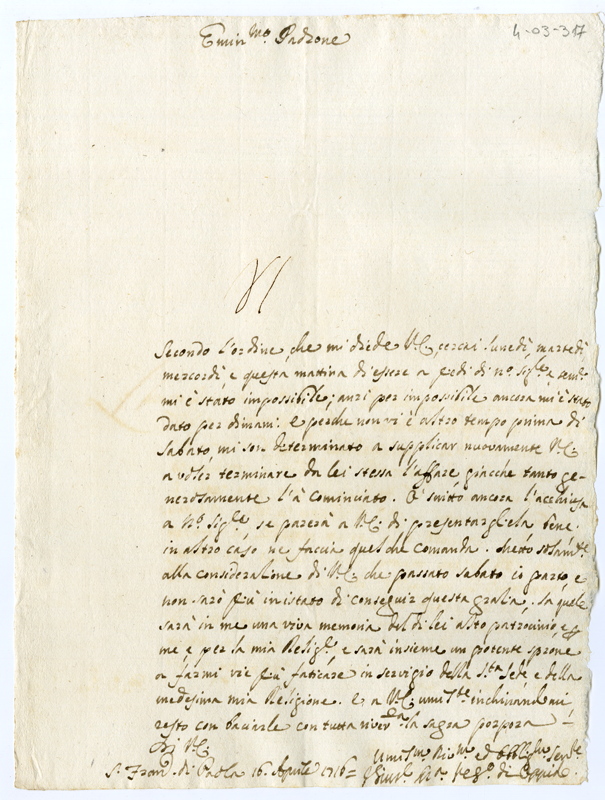 Emin.mo Padrone
4-03-317
Secondo l'ordine, che mi diede V.E., cercai lunedì, martedì
mercordì e questa mattina di essere a piedi di n.o Sig.re, e sem.e
mi è stato impossibile; anzi per impossibile ancora mi è stato
dato per dimani. e perche non vi è altro tempo prima di
Sabato, mi son determinato a supplicar nuovamente V.E.
a voler terminare da lei stessa l'affare giacche tanto ge-
nerosamente l'à cominciato. È scritto ancora l'acchiusa
a N.o Sig.re, se parerà a V.E. di presentargliela bene.
in altro caso ne faccia quel che comanda. metto solam.te
alla consideratione di V.E. che passato sabato io parto, e
non sarò più in istato di conseguir questa gratia, la quale
sarà in me una viva memoria del di lei alto patrocinio, e
me, e per la mia Relig.e, e sarà insieme un potente sprone
a farmi vie più faticare in servigio della S.ta Sede, e della
medesima mia Religione. e a V.E. umil.te inchinandomi
resto con baciarle con tutta river.za la sagra porpora
Di V.E.
S. Fran. di Paola 16. Aprile 1716=
Umil.mo Di.mo ed Obblig.mo Ser.e